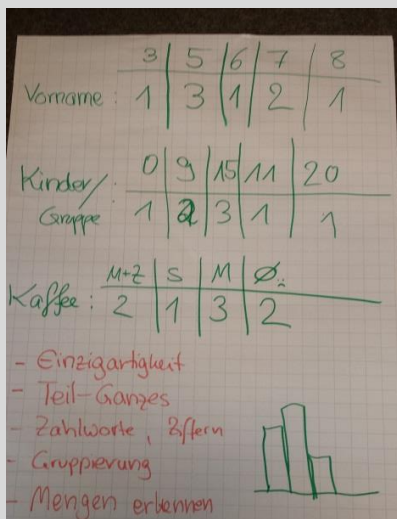 3 5 6 7 8
Vorname: 1 3 1 2 1
0 9 15 11 20
Kinder/
Gruppe: 1 2 3 1 1
M+Z S M Ø
Kaffee: 2 1 3 2
- Einzigartigkeit
- Teil-Ganzes
- Zahlworte, Ziffern
- Gruppierung
- Mengen erkennen